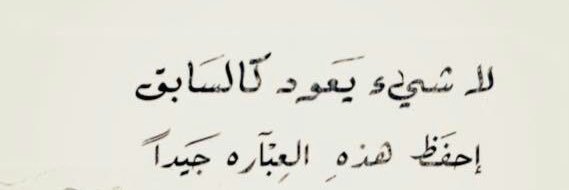 لا شيء يَعود كّالسَابق
إحفَظ هذهِ العِبّآره جَيداً